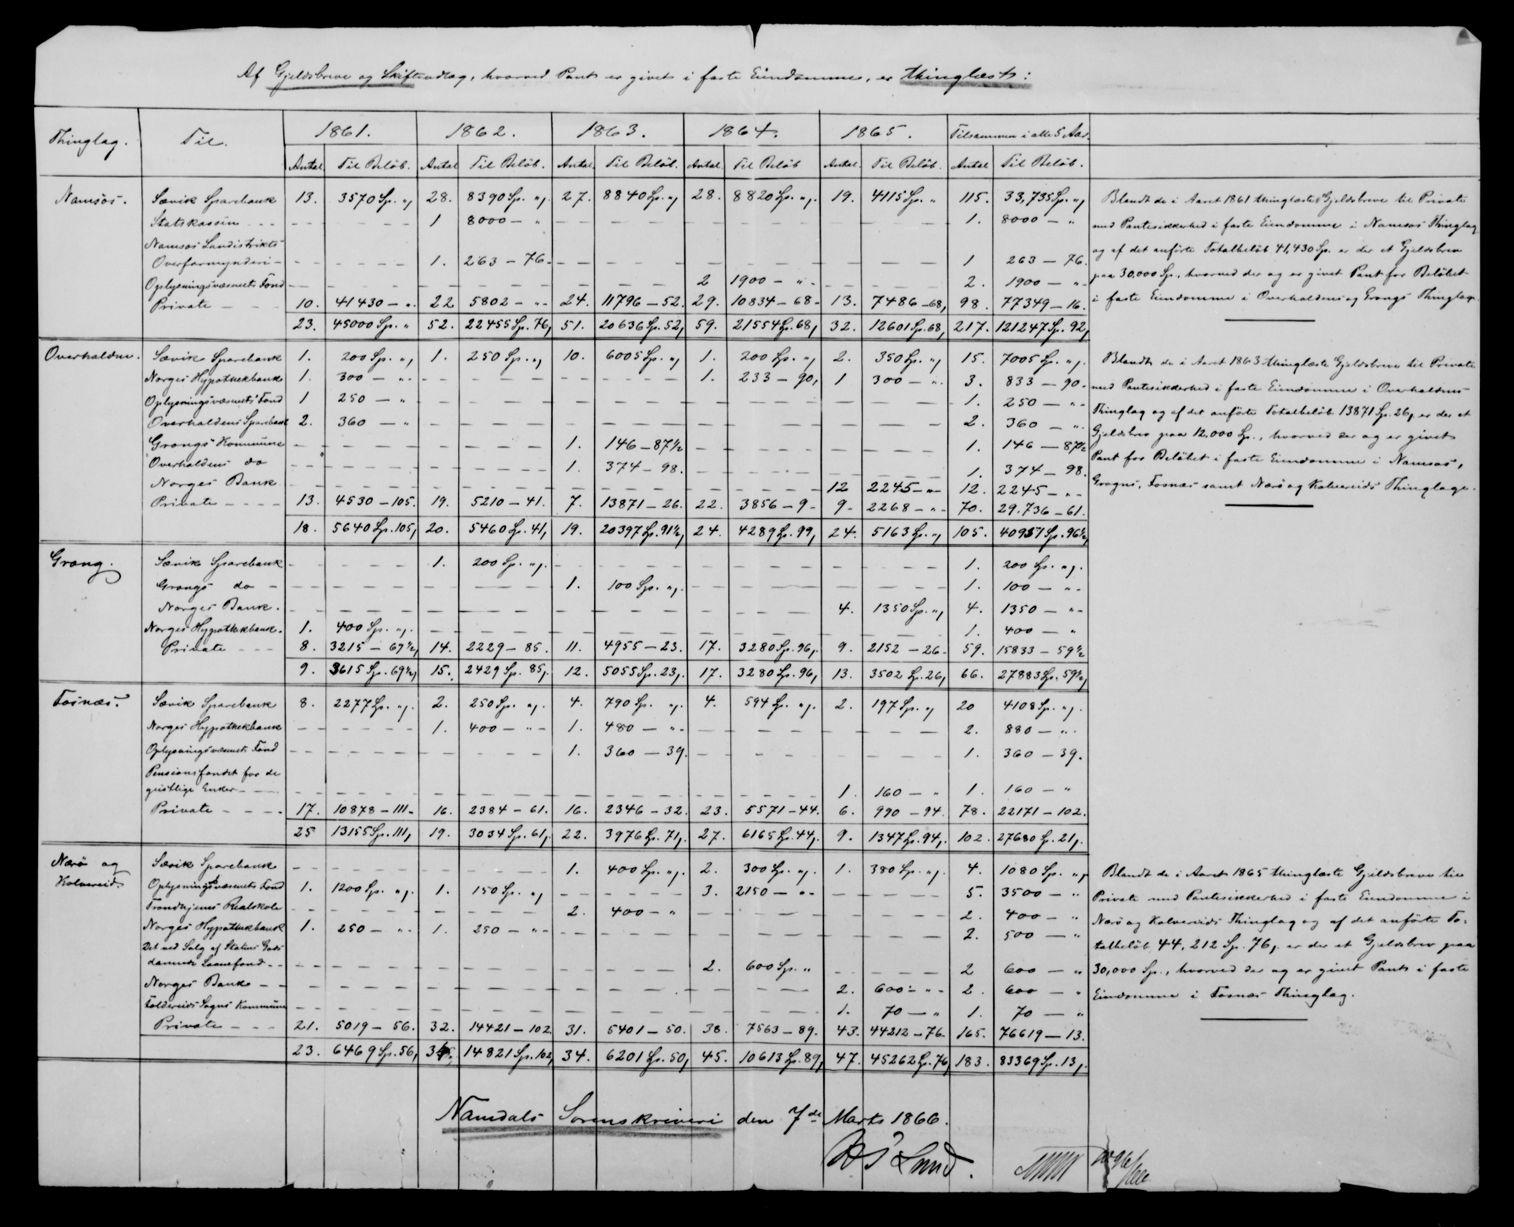 Af Gjeldsbreve og Skifteudlæg, hvorved Pant er givet i faste Eiendomme, er thinglæst:
Thinglag. Til. 1861. 1862. 1863. 1864. 1865. Tilsammen i alle 5 Aar.
Antal Til Beløb. Antal Til Beløb. Antal Til Beløb. Antal Til Beløb Antal Til Beløb. Antal Til Beløb.
Namsos. Sævik Sparebank 13. 3570 Sp. „ 28. 8390 Sp. „ 27. 8840 Sp. „ 28. 8820 Sp. „ 19. 4115 Sp. „ 115. 33,735 Sp. „
Statskassen - - - 1 8000 - „ 1. 8000 - „
Namsos Landistrikts
Overformynderi - 1. 263 - 76. 1 263 - 76.
Oplysningsvæsnets Fond 2 1900 - „ 2. 1900 - „
Private - - - 10. 41430 - „ 22 5802 - „ 24. 11796 - 52. 29. 10834 - 68 - 13. 7486 - 68, 98. 77349 - 16.
23. 45000 Sp. „ 52. 22455 Sp. 76, 51. 20636 Sp. 52, 59. 21554 Sp. 68, 32. 12601 Sp. 68, 217. 121247 Sp. 92,
Blandt de i Aaret 1861 thinglæste Gjeldsbreve til Private
med Pantesikkerhed i faste Eiendomme i Namsos Thinglag
og af det anførte Totalbeløb 41,430 Sp. er der et Gjeldsbrev
paa 30.000 Sp., hvorved der og er givet Pant for Beløbet
i faste Eiendomme i Overhaldens og Grongs Thinglage.
Overhalden. Sævik Sparebank 1. 200 Sp. „ 1. 250 Sp. „ 10. 6005 Sp. „ 1. 200 Sp. „ 2. 350 Sp. „ 15. 7005 Sp. „
Norges Hypothekbank 1. 300 - „ 1. 233 - 90, 1 300 - „ 3. 833 - 90.
Oplysningsvæsnets Fond 1 250 - „ 1. 250 - „
Overhaldens Sparebank 2. 360 - „ 2. 360 - „
Grongs Kommune 1. 146 - 87½ 1. 146 - 87½
Overhaldens do 1. 374 - 98. 1. 374 - 98.
Norges Bank 12 2245 - „ 12. 2245 - „
Private - - - - 13. 4530 - 105. 19. 5210 - 41. 7. 13871 - 26. 22. 3856 - 9 - 9 - 2268 - „ 70. 29.736 - 61.
18. 5640 Sp. 105, 20. 5460 Sp. 41, 19. 20397 Sp. 91½, 24. 4289 Sp. 99, 24. 5163 Sp. „ 105. 40951 Sp. 96½,
Blandt de i Aaret 1863 thinglæste Gjeldsbreve til Private
med Pantesikkerhed i faste Eiendomme i Overhaldens
Thinglag og af det anførte Totalbeløb 13871 Sp. 26, er der et
Gjeldsbrev paa 12,000 Sp., hvorved der og er givet
Pant for Beløbet i faste Eiendomme i Namsos,
Grongs, Fosnæs samt Nærø og Kolvereids Thinglage.
Grong. Sævik Sparebank 1. 200 Sp. „ 1. 200 Sp. „
Grongs do - 1. 100 Sp. „ 1. 100 - „
Norges Bank. 4. 1350 Sp. „ 4. 1350 - „
Norges Hypothekbank. 1. 400 Sp. „ 1. 400 - „
Private - - - 8. 3215 - 69½, 14. 2229 - 85. 11. 4955 - 23. 17. 3280 Sp. 96, 9. 2152 - 26 - 59. 15833 - 59½
9. 3615 Sp. 69½, 15. 2429 Sp. 85, 12. 5055 Sp. 23, 17. 3280 Sp. 96, 13. 3502 Sp. 26, 66. 27883 Sp. 59½,
Fosnæs. Sævik Sparebank 8. 2277 Sp. „ 2. 250 Sp. „ 4. 790 Sp. „ 4. 594 Sp. „ 2. 197 Sp. „ 20 4108 Sp. „
Norges Hypothekbank 1. 400 - „ 1. 480 - „ 2. 880 - „
Oplysningsvæsnets Fond 1. 360 - 39. 1. 360 - 39.
Pensionsfondet for de
geistlige Enker - - - 1. 160 - „ 1. 160 - „
Private - - - - 17. 10878 - 111 - 16. 2384 - 61. 16. 2346 - 32. 23. 5571 - 44. 6. 990 - 94. 78. 22171 - 102.
25 13155 Sp. 111, 19. 3034 Sp. 61, 22. 3976 Sp. 71, 27. 6165 Sp. 44, 9. 1347 Sp. 94, 102. 27680 Sp. 21,
Nærø og Sævik Sparebank 1. 400 Sp. „ 2. 300 Sp. „ 1. 380 Sp. „ 4 1080 Sp. „
Kolvereid Oplysningsvæsnets Fond 1. 1200 Sp. „ 1. 150 Sp. „ 3. 2150 - „ 5. 3500 - „
Trondhjems Realskole 2. 400 - „ 2. 400 - „
Norges Hypothekbank 1. 250 - „ 1. 250 - „ 2. 500 - „
Det ved Salg af Statens Gods
dannede Laanefond - - 2. 600 Sp. „ 2 600 - „
Norges Bank - - 2. 600 - „ 2. 600 - „
Foldereids Sogns Kommune 1. 70 - „ 1. 70 - „
Private - - - 21. 5019 - 56. 32. 14421 - 102 31. 5401 - 50. 38. 7563 - 89. 43. 44212 - 76. 165. 76619 - 13.
23. 6469 Sp. 56, 14821 Sp. 102, 34. 6201 Sp. 50, 45. 10613 Sp. 89, 47. 45262 Sp. 76, 183. 83369 Sp. 13,
Blandt de i Aaret 1865 thinglæste Gjeldsbreve til
Private med Pantesikkerhed i faste Eiendomme i
Nærø og Kolvereids Thinglag og af det anførte To-
talbeløb 44,212 Sp. 76, er der et Gjeldsbrev paa
30,000 Sp., hvorved der og er givet Pant i faste
Eiendomme i Fosnæs Thinglag.
Namdals Sorenskriveri den 7de Marts 1866.
Lund.